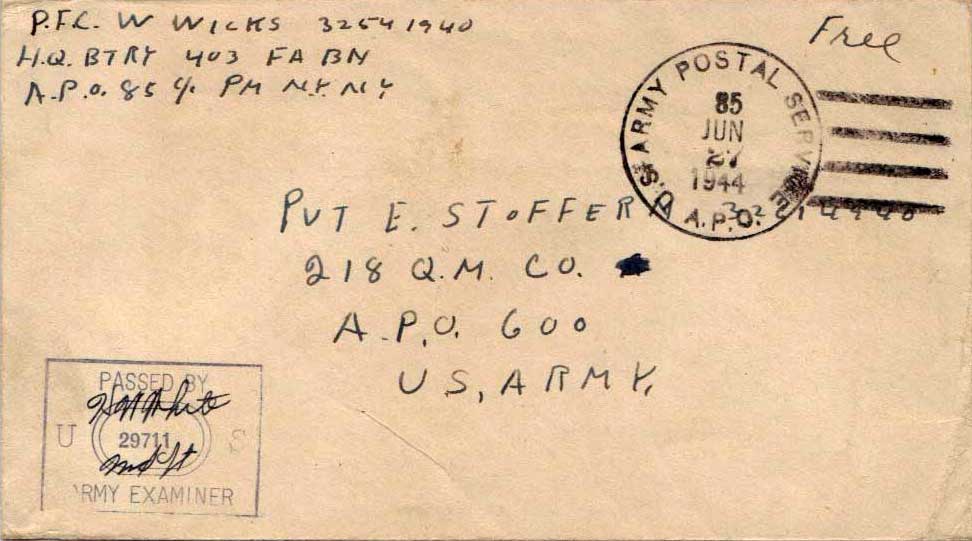 P.F.C. W WICKS 32541940
H.Q. BTRY 403 FA BN
A.P.O. 85 c/o PM N.Y. N.Y.
Free
U.S. ARMY POSTAL SERVICE
A.P.O.
85
JUN
27
1944
PVT E. STOFFER
218 Q.M. CO.
A.P.O. 600
U.S. ARMY.
PASSED BY
U 29711 S
ARMY EXAMINER